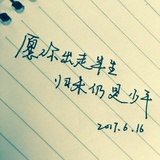 愿你出走半生
归来仍是少年
2017.6.16